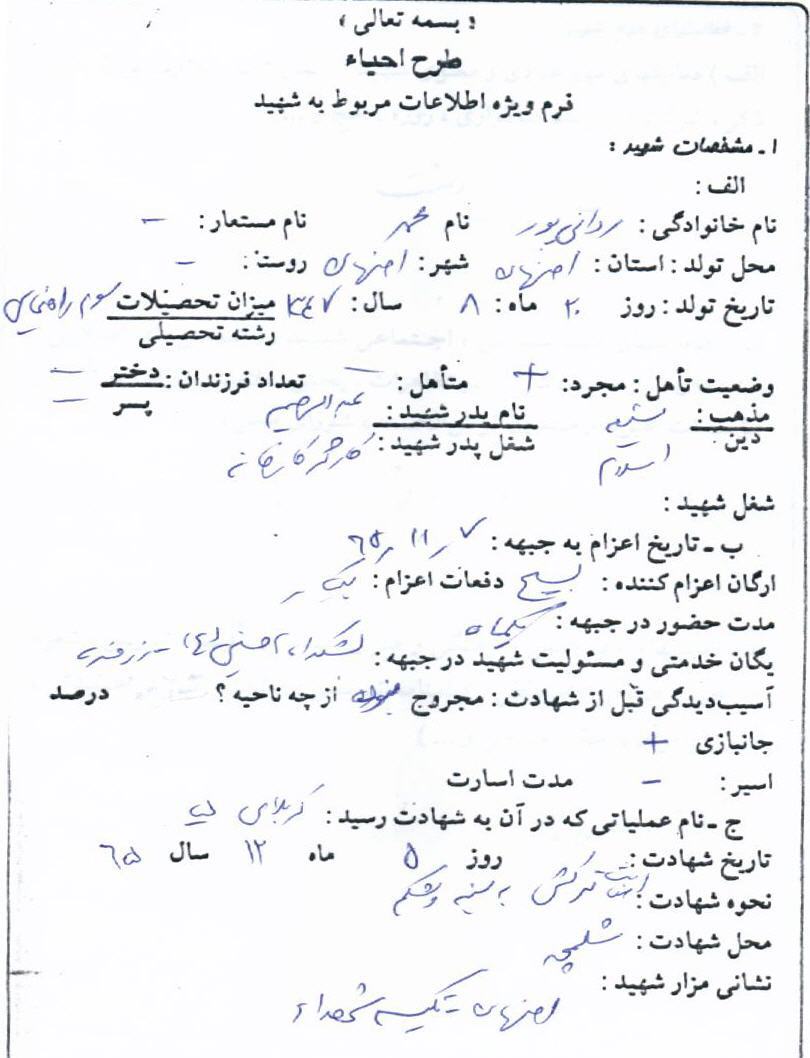 « بسمه تعالی »
طرح احیاء
فرم ویژه اطلاعات مربوط به شهید
۱ـ مشخصات شهید :
الف :
نام خانوادگی : ردانی پور نام محمد نام مستعار : –
محل تولد : استان : اصفهان شهر : اصفهان روستا : –
تاریخ تولد : روز ۲۰ ماه : ۸ سال : ۱۳۴۷ میزان تحصیلات سوم راهنمایی
رشته تحصیلی
وضعیت تأهل : مجرد : + متأهل : – تعداد فرزندان : دختر –
پسر –
مذهب : شیعه نام پدر شهید : عبدالرحیم
دین : اسلام شغل پدر شهید : کارگر کارخانه
شغل شهید :
ب ـ تاریخ اعزام به جبهه : ۷ ر ۱۱ ر ۶۵
ارگان اعزام کننده : بسیج دفعات اعزام : یک
مدت حضور در جبهه : یکماه
یگان خدمتی و مسئولیت شهید در جبهه : لشکر امام حسین (ع) –
آسیب‌دیدگی قبل از شهادت : مجروح از چه ناحیه ؟ درصد
جانبازی +
اسیر : – مدت اسارت
ج ـ نام عملیاتی که در آن به شهادت رسید : کربلای
تاریخ شهادت : روز ۵ ماه ۱۲ سال ۶۵
نحوه شهادت : اصابت ترکش به سینه و شکم
محل شهادت : شلمچه
نشانی مزار شهید :
اصفهان – تکیه شهداء